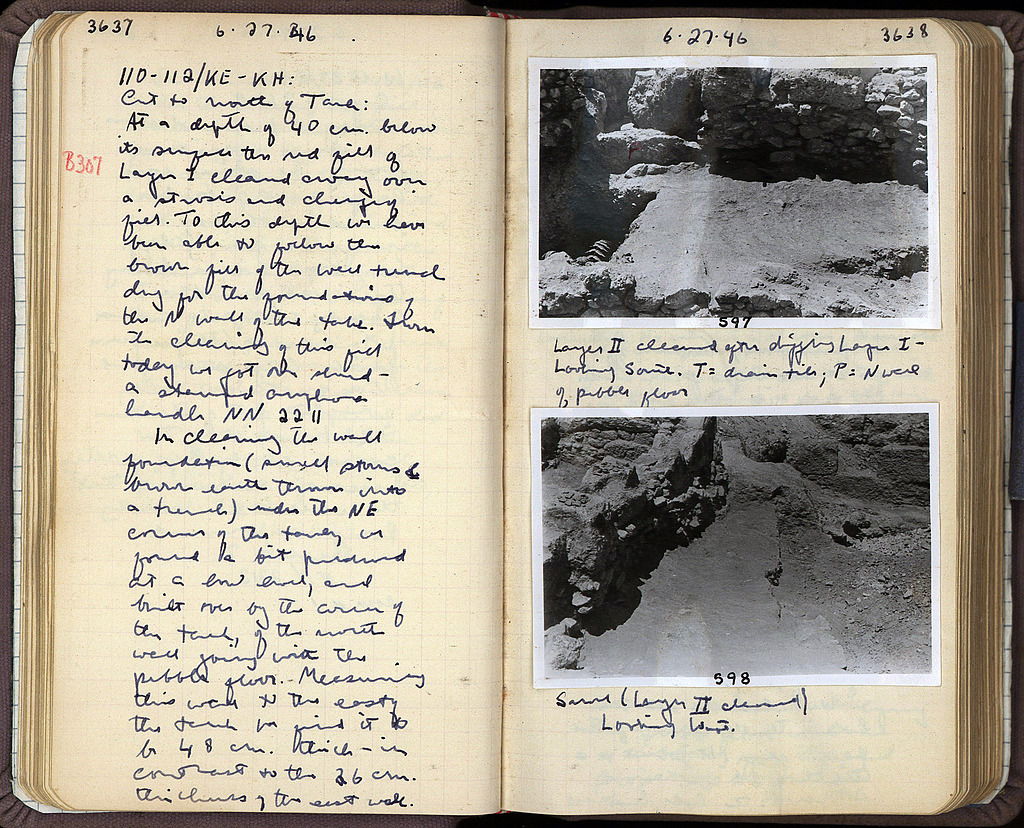 3637
6·27·46
110-112/KE-KH:
Cut to north of Tank:
At a depth of 40 cm. below
its surface the red fill of
B307
Layer I cleared away over
a strosis and changing
fill. To this depth we have
been able to follow the
brown fill of the wall trench
dug for the foundations of
the N wall of the tank. From
the clearing of this fill
today we got one sherd-
a stamped amphora
handle NN 2211
In cleaning the wall
foundation (small stones &
brown earth thrown into
a trench) under the NE
corner of the tank, we
found a bit preserved
at a low level, and
built over by the corner of
the tank, of the north
wall going with the
pebble floor. Measuring
this wall to the east of
the tank we find it to
be 48 cm. thick - in
contrast to the 36 cm.
thickness of the east wall.
6·27·46
3638
597
Layer II cleaned after digging Layer I-
Looking South. T= drain tile; P= N wall
of pebble floor
598
Same (Layer II cleaned)
Looking West.